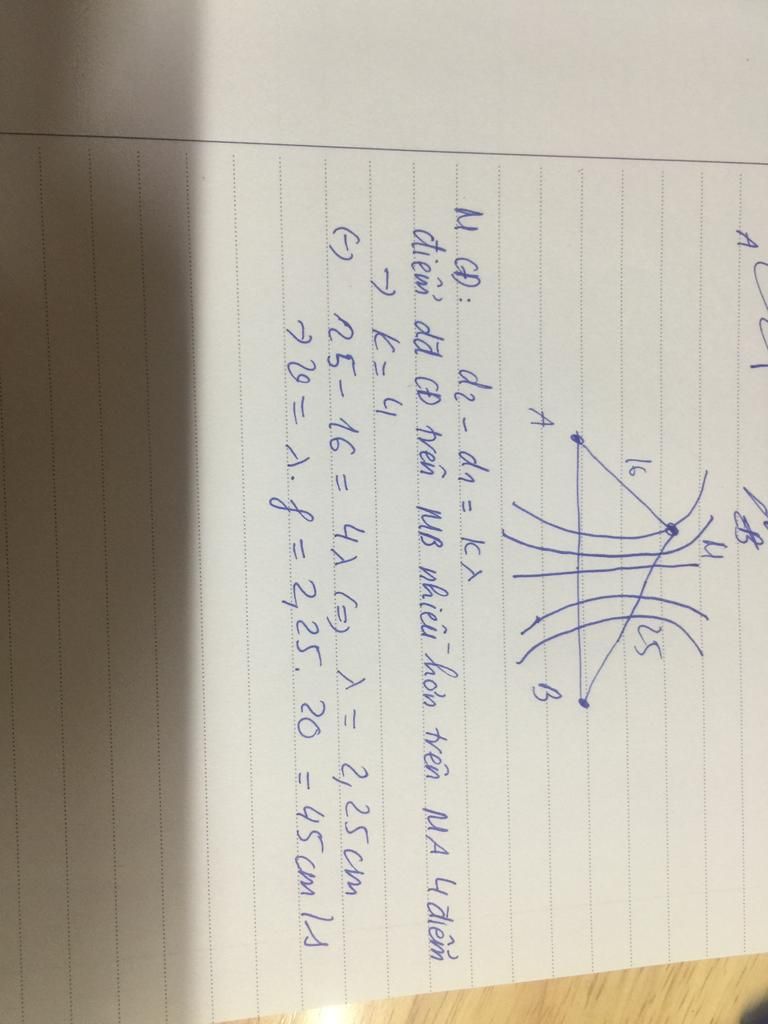 A
B
A
16
M
25
B
M CĐ: d2 - d1 = kλ
điểm dđ CĐ trên MB nhiều hơn trên MA 4 điểm
→ k = 4
(-) 25 - 16 = 4λ (=) λ = 2,25 cm
→ v = λ.f = 2,25.20 = 45 cm/s